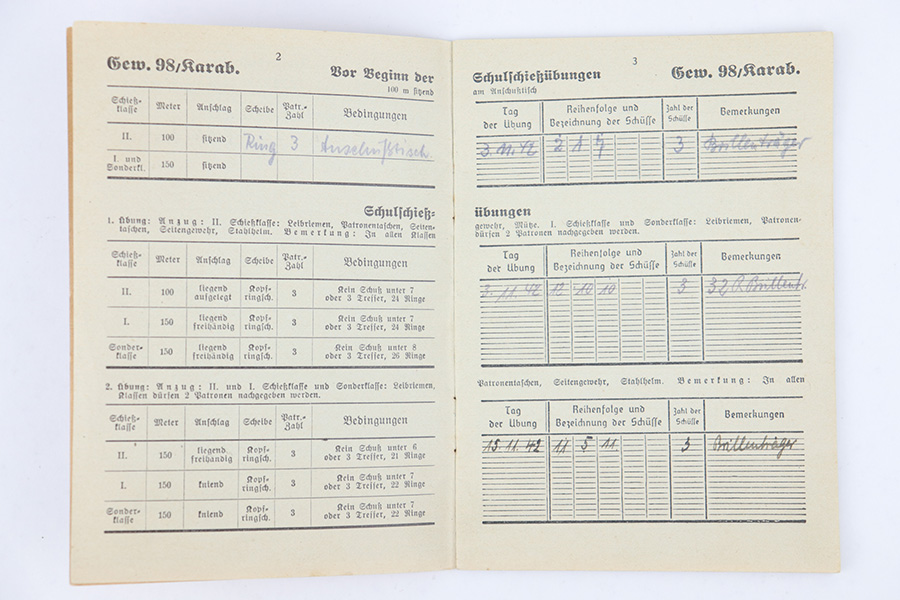 2
Gew. 98/Karab. Vor Beginn der
100 m sitzend
Schieß-klasse Meter Anschlag Scheibe Patr.-Zahl Bedingungen
II. 100 sitzend Ring 3 Anschußtisch.
I. und Sonderkl. 150 sitzend
Schulschieß-
1. Übung: Anzug: II. Schießklasse: Leibriemen, Patronentaschen, Seiten-
taschen, Seitengewehr, Stahlhelm. Bemerkung: In allen Klassen
Schieß-klasse Meter Anschlag Scheibe Patr.-Zahl Bedingungen
II. 100 liegend aufgelegt Kopf-ringsch. 3 Kein Schuß unter 7
oder 3 Treffer, 24 Ringe
I. 150 liegend freihändig Kopf-ringsch. 3 Kein Schuß unter 7
oder 3 Treffer, 24 Ringe
Sonder-klasse 150 liegend freihändig Kopf-ringsch. 3 Kein Schuß unter 8
oder 3 Treffer, 26 Ringe
2. Übung: Anzug: II. und I. Schießklasse und Sonderklasse: Leibriemen,
Klassen dürfen 2 Patronen nachgegeben werden.
Schieß-klasse Meter Anschlag Scheibe Patr.-Zahl Bedingungen
II. 150 liegend freihändig Kopf-ringsch. 3 Kein Schuß unter 6
oder 3 Treffer, 21 Ringe
I. 150 kniend Kopf-ringsch. 3 Kein Schuß unter 7
oder 3 Treffer, 22 Ringe
Sonder-klasse 150 kniend Kopf-ringsch. 3 Kein Schuß unter 7
oder 3 Treffer, 22 Ringe
3
Schulschießübungen Gew. 98/Karab.
am Anschußtisch
Tag der Übung Reihenfolge und Bezeichnung der Schüsse Zahl der Schüsse Bemerkungen
3. 11. 42 2 1 7 3 Brillenträger
übungen
gewehr, Mütze. I. Schießklasse und Sonderklasse: Leibriemen, Patronen-
dürfen 2 Patronen nachgegeben werden.
Tag der Übung Reihenfolge und Bezeichnung der Schüsse Zahl der Schüsse Bemerkungen
3. 11. 42 12 10 10 3 32 R. Brillentr.
Patronentaschen, Seitengewehr, Stahlhelm. Bemerkung: In allen
Tag der Übung Reihenfolge und Bezeichnung der Schüsse Zahl der Schüsse Bemerkungen
15. 11. 42 11 5 11 3 Brillenträger